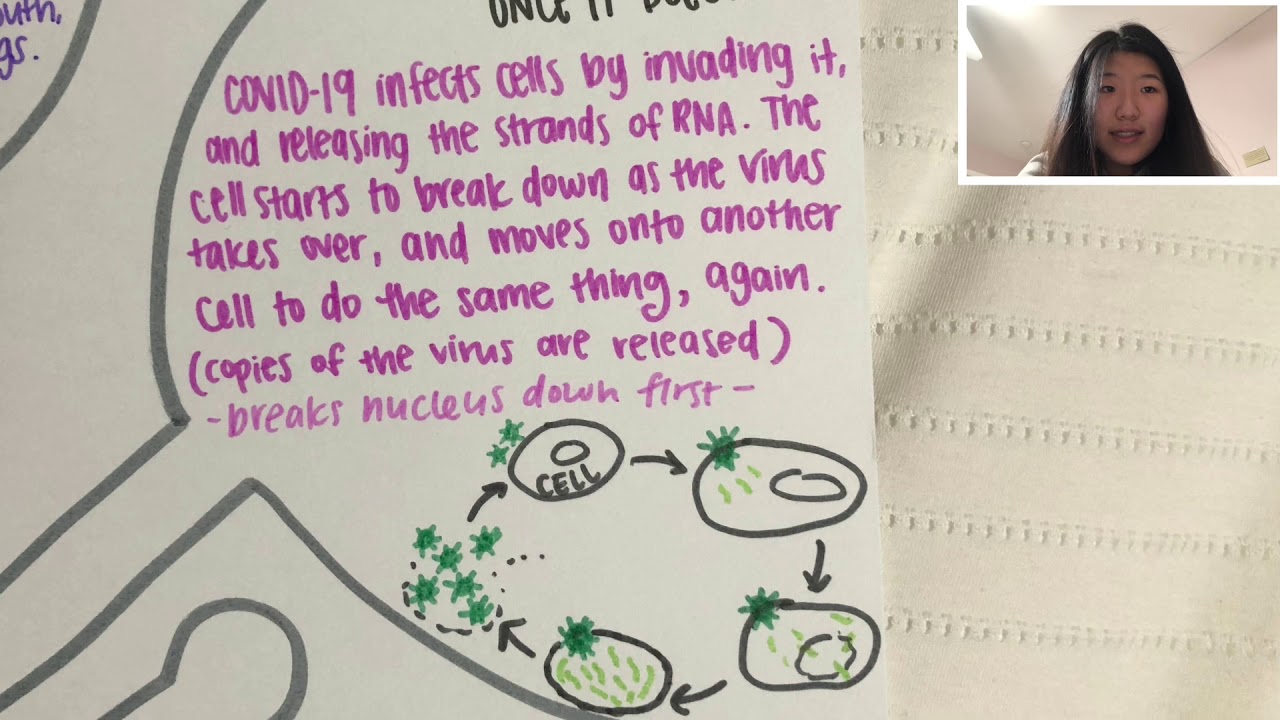 outh,
gs.
COVID-19 infects cells by invading it,
and releasing the strands of RNA. The
cell starts to break down as the virus
takes over, and moves onto another
cell to do the same thing, again.
(copies of the virus are released)
-breaks nucleus down first-
CELL